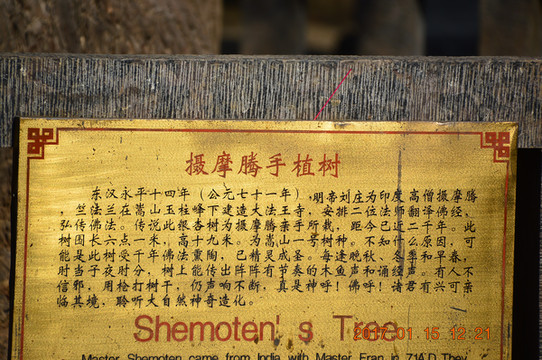 摄摩腾手植树
东汉永平十四年（公元七十一年），明帝刘庄为印度高僧摄摩腾
，竺法兰在嵩山玉柱峰下建造大法王寺，安排二位法师翻译佛经，
弘传佛法。传说此银杏树为摄摩腾亲手所栽，距今已近二千年。此
树围长六点一米，高十九米。为嵩山一号树种。不知什么原因，可
能是此树受千年佛法熏陶，已精灵成圣。每逢晚秋、冬季和早春，
时当子夜时分，树上能传出阵阵有节奏的木鱼声和诵经声。有人不
信邪，用枪打树干，仍声响不断，真是神呼！佛呼！诸君有兴可亲
临其境，聆听大自然神奇造化。
Shemoten's Tree
2017.01.15 12:21
Master Shemoten came from India with Master Fran in 71A.D They